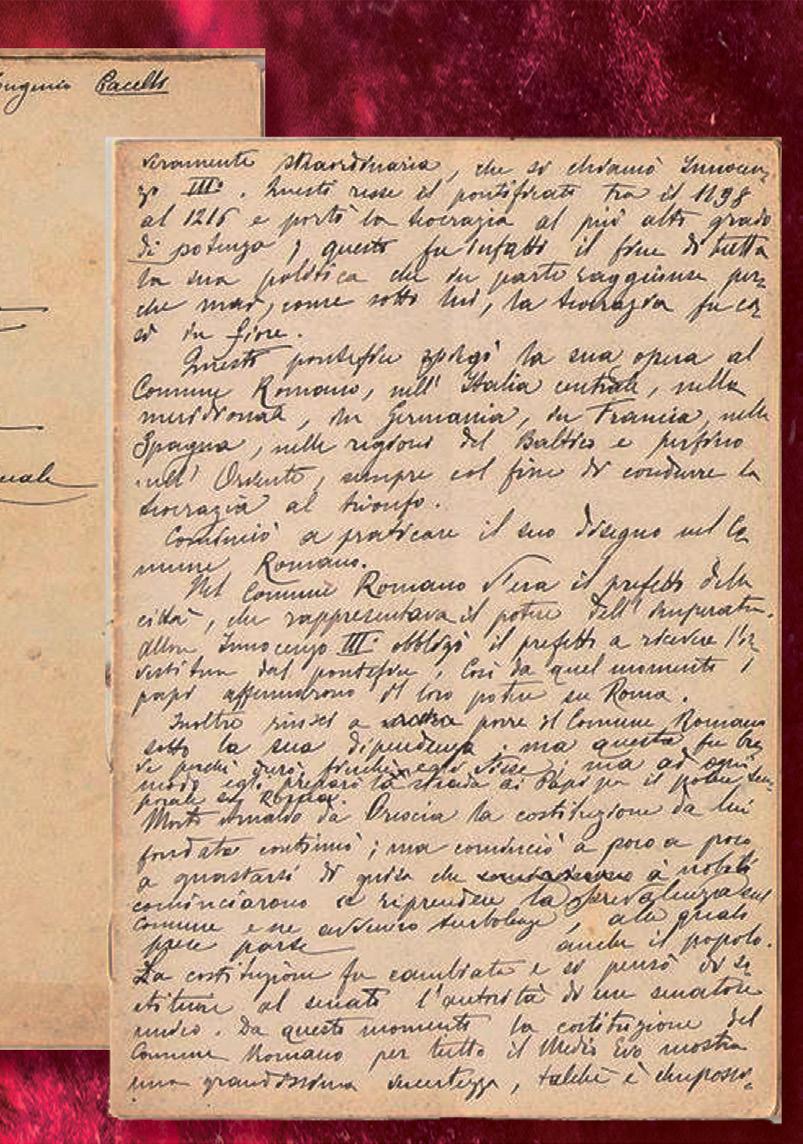 Eugenio Pacelli
veramente straordinaria, che si chiamò Innocen-
zo III°. Questi resse il pontificato tra il 1198
al 1216 e portò la teocrazia al più alto grado
di potenza; questo fu infatti il fine di tutta
la sua politica che in parte raggiunse per-
chè mai, come sotto lui, la teocrazia fu co-
sì in fiore.
Questo pontefice spiegò la sua opera al
Comune Romano, nell' Italia centrale, nella
meridionale, in Germania, in Francia, nella
Spagna, nelle regioni del Baltico e perfino
nell' Oriente, sempre col fine di condurre la
teocrazia al trionfo.
Cominciò a praticare il suo disegno nel Co-
mune Romano.
Nel Comune Romano v'era il prefetto della
città, che rappresentava il potere dell' Imperatore.
allora Innocenzo III° obbligò il prefetto a ricevere l'in-
vestitura dal pontefice, così da quel momento i
papi affermarono il loro potere su Roma.
Inoltre riuscì a porre il Comune Romano
sotto la sua dipendenza; ma questa fu bre-
ve perchè durò finchè egli visse; ma ad ogni
modo egli preparò la strada ai Papi per il potere tem-
porale su Roma.
Morto Arnaldo da Brescia la costituzione da lui
fondata continuò; ma cominciò a poco a poco
a guastarsi di guisa che i nobili
cominciarono a riprendere la prevalenza sul
Comune e ne avvenero turbolenze, alle quali
prese parte anche il popolo.
La costituzione fu cambiata e si pensò di so-
stituire al senato l'autorità di un senatore
unico. Da questo momento la costituzione del
Comune Romano per tutto il Medio Evo mostra
una grandissima incertezza, talchè è impossi-